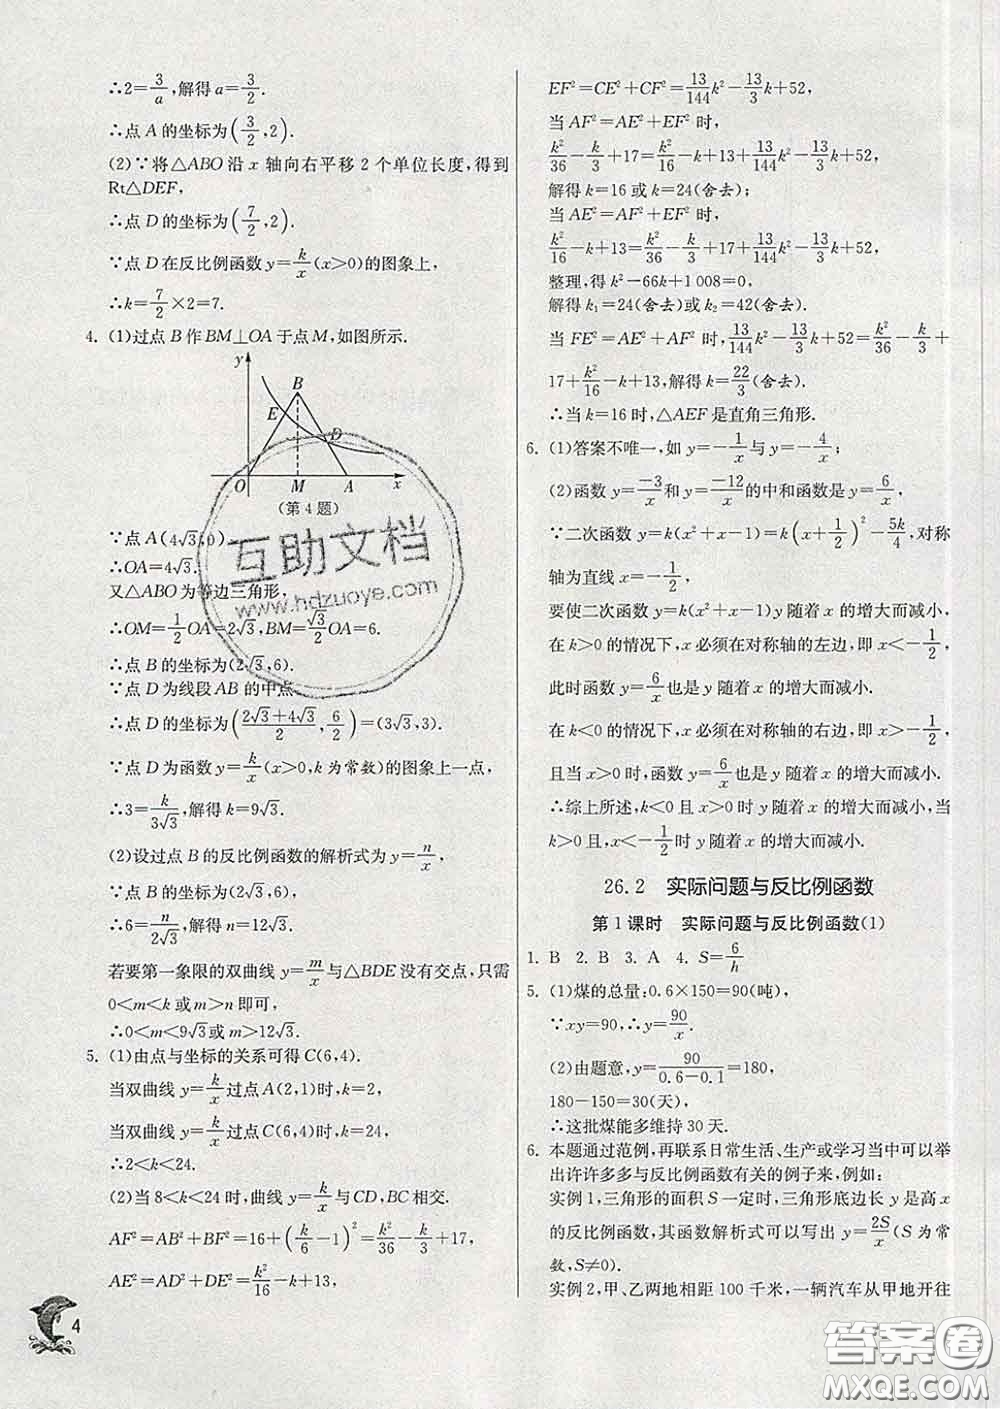 ∴2=3/a,解得 a=3/2.
∴点 A 的坐标为(3/2,2).
(2)∵将△ABO 沿 x 轴向右平移 2 个单位长度,得到
Rt△DEF,
∴点 D 的坐标为(7/2,2).
∵点 D 在反比例函数 y=k/x(x>0)的图象上,
∴k=7/2×2=7.
4. (1)过点 B 作 BM⊥OA 于点 M,如图所示.
y
B
E
D
O M A x
(第 4 题)
∵点 A(4√3,0),
∴OA=4√3.
又△ABO 为等边三角形,
∴OM=1/2OA=2√3,BM=√3/2OA=6.
∴点 B 的坐标为(2√3,6).
∵点 D 为线段 AB 的中点
∴点 D 的坐标为((2√3+4√3)/2,6/2)=(3√3,3).
∵点 D 为函数 y=k/x(x>0,k 为常数)的图象上一点,
∴3=k/3√3,解得 k=9√3.
(2)设过点 B 的反比例函数的解析式为 y=n/x,
∵点 B 的坐标为(2√3,6),
∴6=n/2√3,解得 n=12√3.
若要第一象限的双曲线 y=m/x与△BDE 没有交点,只需
0<m<k 或 m>n 即可,
∴0<m<9√3或 m>12√3.
5. (1)由点与坐标的关系可得 C(6,4).
当双曲线 y=k/x过点 A(2,1)时,k=2,
当双曲线 y=k/x过点 C(6,4)时,k=24,
∴2<k<24.
(2)当 8<k<24 时,曲线 y=k/x与 CD,BC 相交.
AF²=AB²+BF²=16+(k/6-1)²=k²/36-k/3+17,
AE²=AD²+DE²=k²/16-k+13,
EF²=CE²+CF²=13/144k²-13/3k+52,
当 AF²=AE²+EF² 时,
k²/36-k/3+17=k²/16-k+13+13/144k²-13/3k+52,
解得 k=16 或 k=24(舍去);
当 AE²=AF²+EF² 时,
k²/16-k+13=k²/36-k/3+17+13/144k²-13/3k+52,
整理,得 k²-66k+1 008=0,
解得 k₁=24(舍去)或 k₂=42(舍去).
当 FE²=AE²+AF² 时,13/144k²-13/3k+52=k²/36-k/3+
17+k²/16-k+13,解得 k=22/3(舍去).
∴当 k=16 时,△AEF 是直角三角形.
6. (1)答案不唯一,如 y=-1/x与 y=-4/x;
(2)函数 y=-3/x和 y=-12/x的中和函数是 y=6/x,
∵二次函数 y=k(x²+x-1)=k(x+1/2)²-5k/4,对称
轴为直线 x=-1/2,
要使二次函数 y=k(x²+x-1)y 随着 x 的增大而减小,
在 k>0 的情况下,x 必须在对称轴的左边,即 x<-1/2,
此时函数 y=6/x也是 y 随着 x 的增大而减小.
在 k<0 的情况下,x 必须在对称轴的右边,即 x>-1/2,
且当 x>0 时,函数 y=6/x也是 y 随着 x 的增大而减小.
∴综上所述,k<0 且 x>0 时 y 随着 x 的增大而减小,当
k>0 且,x<-1/2时 y 随着 x 的增大而减小.
26.2 实际问题与反比例函数
第 1 课时 实际问题与反比例函数(1)
1. B 2. B 3. A 4. S=6/h
5. (1)煤的总量:0.6×150=90(吨),
∵xy=90,∴y=90/x.
(2)由题意,y=90/(0.6-0.1)=180,
180-150=30(天),
∴这批煤能多维持 30 天.
6. 本题通过范例,再联系日常生活、生产或学习当中可以举
出许许多多与反比例函数有关的例子来,例如:
实例 1,三角形的面积 S 一定时,三角形底边长 y 是高 x
的反比例函数,其函数解析式可以写出 y=2S/x(S 为常
数,S≠0).
实例 2,甲、乙两地相距 100 千米,一辆汽车从甲地开往
4
互助文档
www.hdzuoye.com
答案圈
MXQE.COM